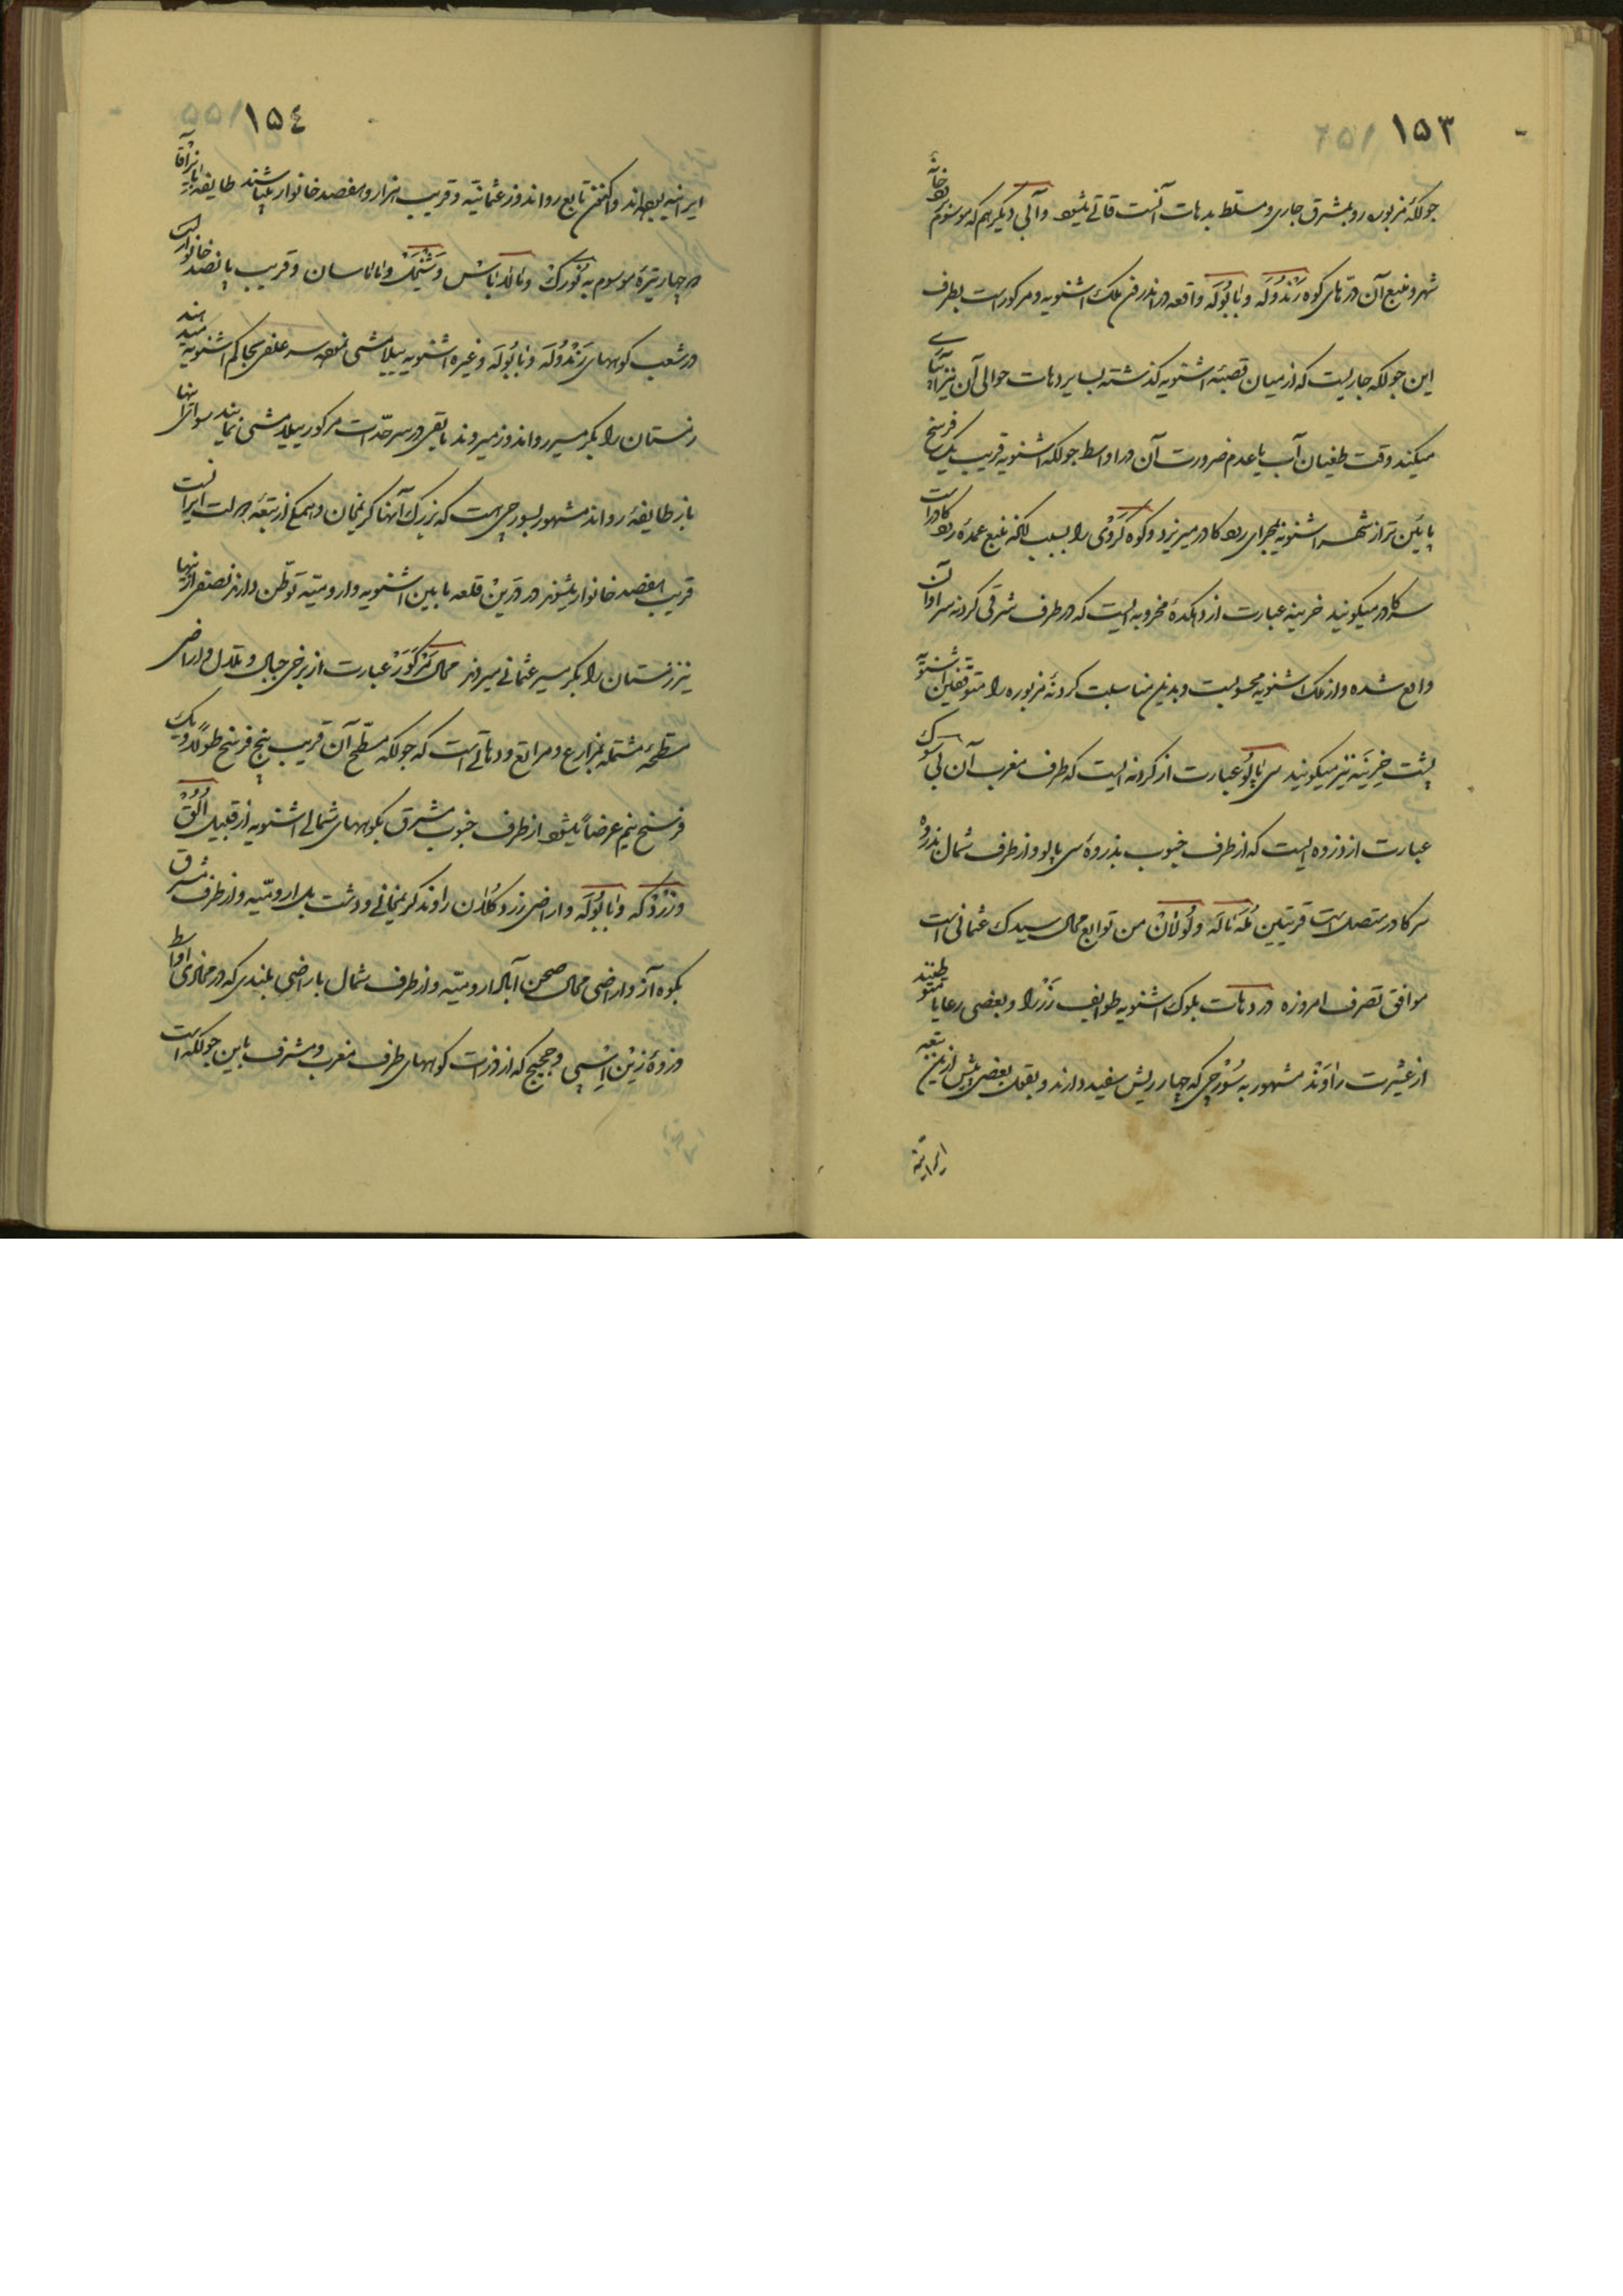 ۱۵۳
جولکهٔ مزبوره رو بمشرق جاری و مسلط بدهات آنست قاتی میشود و آبی دیگر هم که موسوم برودخانهٔ
شهر و منبع آن درهای کوه رندوله و بابوله واقعه در اندرون ملک اشنویه و مرکور است بطرف
این جولکه جاریست که از میان قصبهٔ اشنویه گذشته بسایر دهات حوالی آن نیز آبیاری
میکند وقت طغیان آب یا عدم ضرورت آن در اواسط جولکه اشنویه قریب یک فرسخ
پائین تر از شهر اشنویه بمجرای رود کادر میریزد و کوه گروی را بسبب آنکه منبع عمدهٔ رود کادر است
سرکادر میگویند خرینه عبارت از دهکدهٔ مخروبه ایست که در طرف شرقی گردنه سراوان
واقع شده و از ملک اشنویه محسوبست و بدین مناسبت گردنهٔ مزبوره را متوقفین اشنویه
پشت خرینه نیز میگویند سی پاپلو عبارت از گردنه ایست که طرف مغرب آن
عبارت از ذروه ایست که از طرف جنوب بذروهٔ سی پاپلو و از طرف شمال بذروه
سرکادر متصل است قریتین و لولان من توابع محال سیدک عثمانی است
موافق تصرف امروزه در دهات بلوک اشنویه طوایف زرزا و بعضی رعایا متوطنند
از عشیرت راوند مشهور به سورچی که چهار ریش سفید دارند و بقول بعضی پیش ازین تبعه
ایرانیه
۱۵٤
ایرانیه بوده اند و اکنون تابع رواندوز عثمانیه و قریب هزار و هفصد خانوار میباشند طایفه پیران آقا
هم چهار تیرهٔ موسوم به نورک و وشتمک و ماماسان و قریب پانصد خانوار است
در شعب کوههای رندوله و بابوله و غیره اشنویه ییلامشی نموده سر علفی بحاکم اشنویه میدهند
زمستان را بگرمسیر رواندوز میروند باقی در سرحدات مرکور ییلامشی نمایند سوای اینها
باز طایفهٔ رواند مشهور بسورچی است که بزرگ آنها کریمخان و همگی از تبعهٔ دولت ایرانست
قریب هفصد خانوار میشوند در درین قلعه مابین اشنویه و ارومیه توطن دارند نصفی از اینها
نیز زمستان را بگرمسیر عثمانی میروند محال مرگور عبارت از برخی جبال و تلال و اراضی
مسطحه مشتمله بمزارع و مراتع و دهاتی است که جولکه مسطح آن قریب پنج فرسخ طولاً و یک
فرسخ نیم عرضاً میشود از طرف جنوب مشرق بکوههای شمالی اشنویه از قبیل الق
و زردکه و بابوله و اراضی زرد کلان راوند کریمخانی و دشت بیل ارومیه و از طرف مشرق
بکوه آز و اراضی محال صحن آباد ارومیه و از طرف شمال باراضی بلندی که در محاذی اواسط
ذروهٔ زین اسپی و ججیج که از ذرات کوههای طرف مغرب و مشرف باین جولکه است